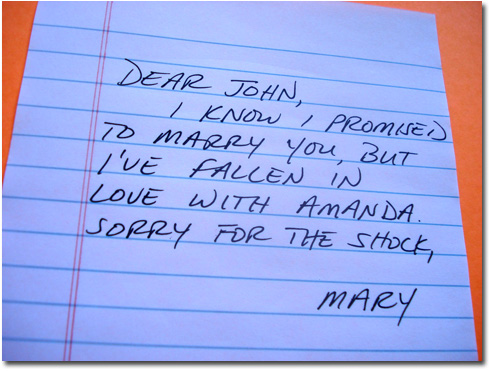 DEAR JOHN,
I KNOW I PROMISED
TO MARRY YOU, BUT
I'VE FALLEN IN
LOVE WITH AMANDA.
SORRY FOR THE SHOCK,
MARY